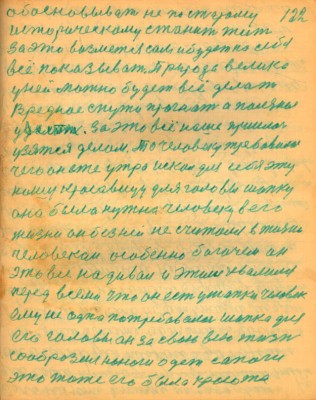 обосновывать не по старому 122
историческому станит жит
За это возмется сам и будет на себе
всё показыват. Природа велика
у ней можно будет всё делат
Вредное спутю прогнат а полезное
узят. За это всё наше пришлос
узятся делом. То человеку требовалос
чего он све утро искал для себя эту
самую красавицу для головы шапку
она была нужна человеку в его
жизни он без ней не считался в жизни
человеком особенно богачем он
Это всё надивал и этим хвалился
перед всеми что он ест у шапки человек
Ему не одна потребовалос шапка для
его головы он за свою всю жизн
сообразил на ноги одет сапоги
это тоже его была красота